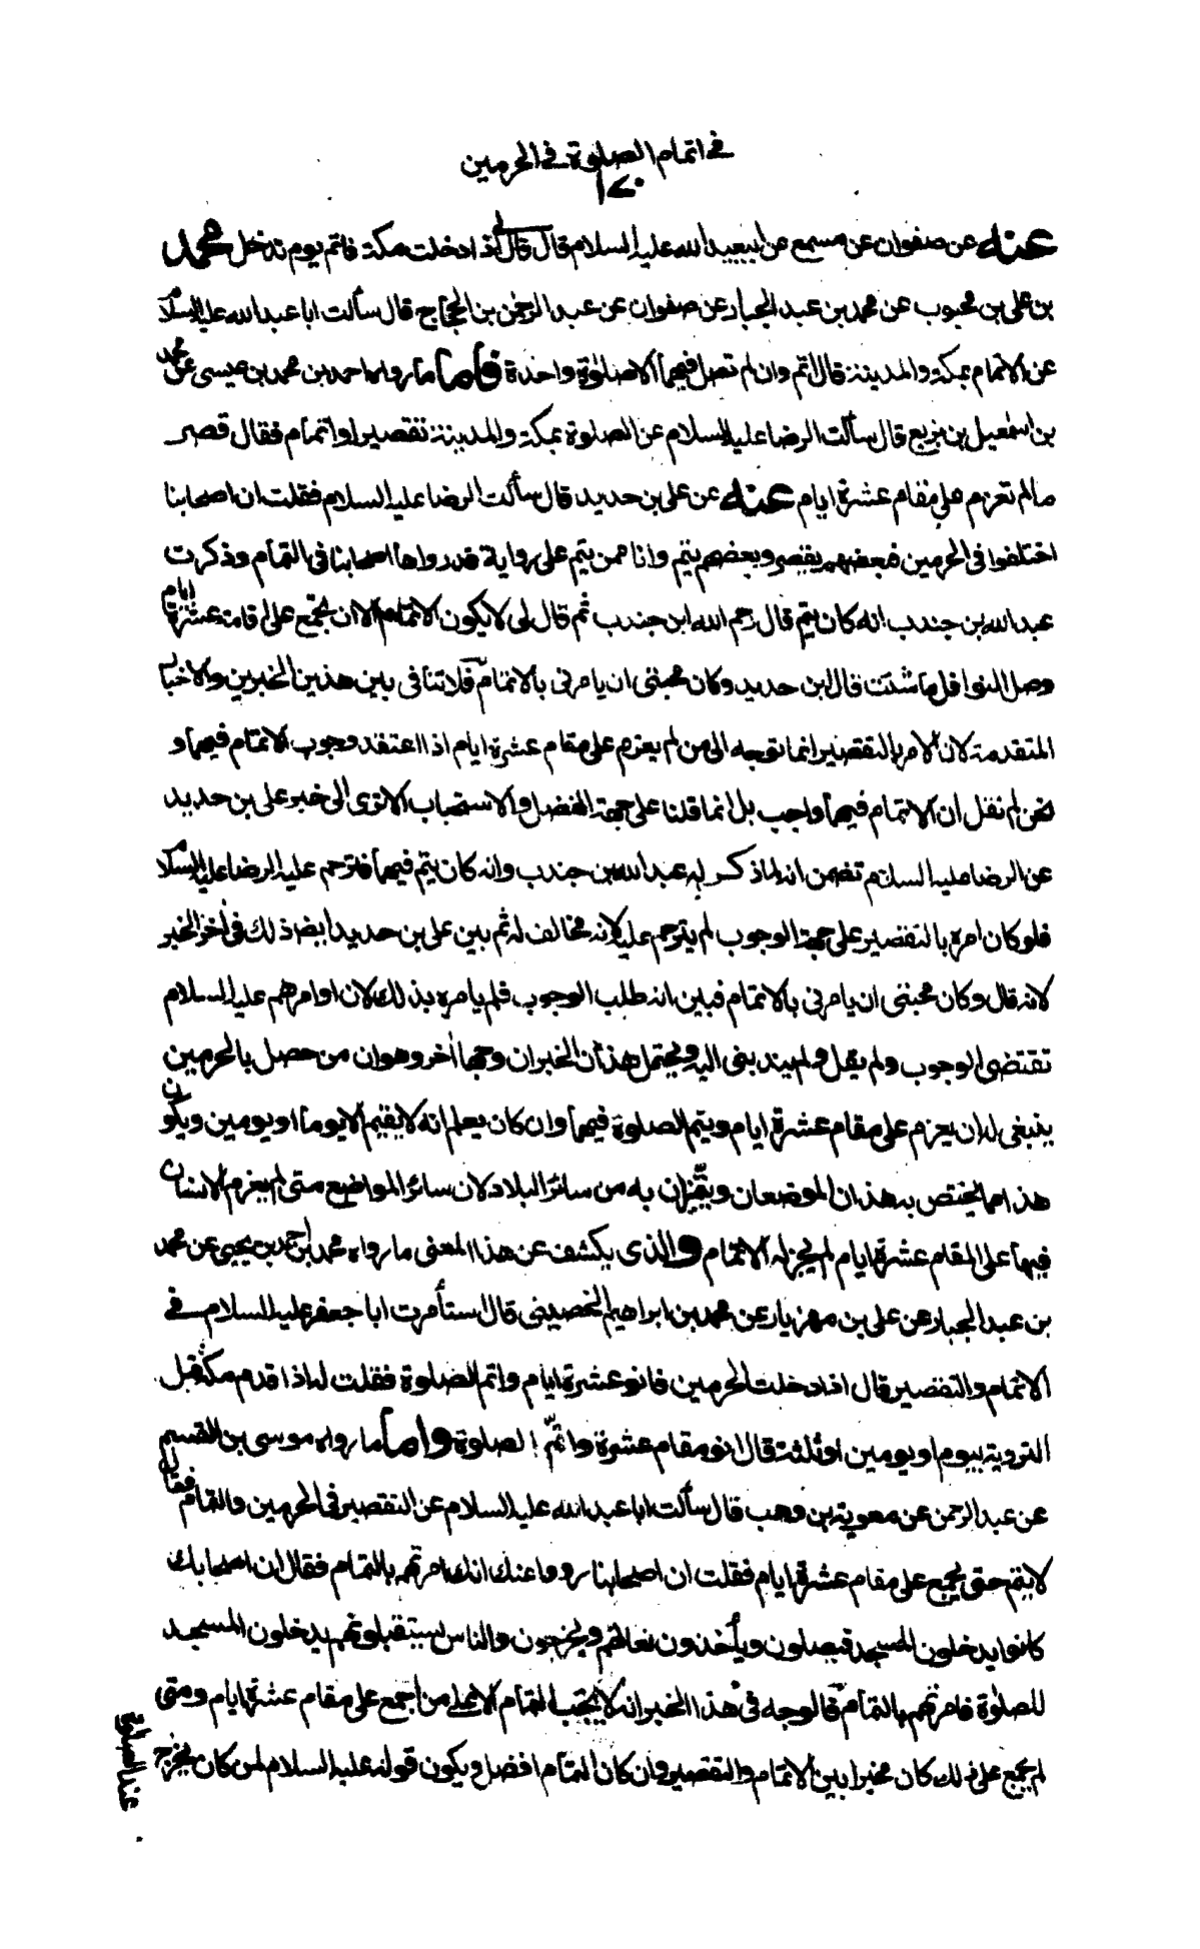 في اتمام الصلوة في الحرمين
١٧٠
عنه عن صفوان عن مسمع عن ابيعبدالله عليه السلام قال قال لي اذا دخلت مكة فاتم يوم تدخل محمد
بن على بن محبوب عن محمد بن عبد الجبار عن صفوان عن عبد الرحمن بن الحجاج قال سألت ابا عبد الله عليه السلام
عن الاتمام بمكة والمدينة قال اتم وان لم تصل فيهما الا صلوة واحدة فاما ما رواه احمد بن محمد بن عيسى عن محمد
بن اسمعيل بن بزيع قال سألت الرضا عليه السلام عن الصلوة بمكة والمدينة تقصير او اتمام فقال قصر
ما لم تعزم على مقام عشرة ايام عنه عن على بن حديد قال سألت الرضا عليه السلام فقلت ان اصحابنا
اختلفوا فى الحرمين فبعضهم يقصر وبعضهم يتم وانا ممن يتم على رواية قد رواها اصحابنا فى التمام وذكرت
عبد الله بن جندب انه كان يتم قال رحم الله ابن جندب ثم قال لى لا يكون الاتمام الا ان تجمع على اقامة عشرة ايام
وصل النوافل ما شئت قال ابن حديد وكان محبتى ان يامرنى بالاتمام فلا تنافى بين هذين الخبرين والاخبار
المتقدمة لان الامر بالتقصير انما توجه الى من لم يعزم على مقام عشرة ايام اذا اعتقد وجوب الاتمام فيهما و
نحن لم نقل ان الاتمام فيهما واجب بل انما قلنا على جهة الفضل والاستحباب الا ترى الى خبر على بن حديد
عن الرضا عليه السلام تضمن انه لما ذكر له عبد الله بن جندب وانه كان يتم فيهما فترحم عليه الرضا عليه السلام
فلو كان امره بالتقصير على جهة الوجوب لم يترحم عليه لانه مخالف له ثم بين على بن حديد ايضا ذلك فى اخر الخبر
لانه قال وكان محبتى ان يامرنى بالاتمام فبين انه طلب الوجوب فلم يامره بذلك لان اوامرهم عليه السلام
تقتضى الوجوب ولم يقل ولم يندبنى اليه ويحتمل هذان الخبران وجها اخر وهو ان من حصل بالحرمين
ينبغى له ان يعزم على مقام عشرة ايام ويتم الصلوة فيهما وان كان يعلم انه لا يقيم الا يوما او يومين ويكون
هذا مما يختص به هذان الموضعان ويتميزان به من سائر البلاد لان سائر المواضع متى لم يعزم الانسان
فيها على المقام عشرة ايام لم يجز له الاتمام والذى يكشف عن هذا المعنى ما رواه محمد بن احمد بن يحيى عن محمد
بن عبد الجبار عن على بن مهزيار عن محمد بن ابراهيم الحضينى قال استأمرت ابا جعفر عليه السلام في
الاتمام والتقصير قال اذا دخلت الحرمين فانو عشرة ايام واتم الصلوة فقلت له اذا اقدم مكة قبل
التروية بيوم او يومين او ثلثة قال انو مقام عشرة واتم الصلوة واما ما رواه موسى بن القسم
عن عبد الرحمن عن معوية بن وهب قال سألت ابا عبد الله عليه السلام عن التقصير فى الحرمين والتمام فقال
لا يتم حتى يجمع على مقام عشرة ايام فقلت ان اصحابنا رووا عنك انك امرتهم بالتمام فقال ان اصحابك
كانوا يدخلون المسجد فيصلون ويأخذون نعالهم ويخرجون والناس يستقبلونهم يدخلون المسجد
للصلوة فامرتهم بالتمام فالوجه فى هذا الخبر انه لا يجب التمام الا على من اجمع على مقام عشرة ايام ومتى
لم يجمع على ذلك كان مخيرا بين الاتمام والتقصير وان كان التمام افضل ويكون قوله عليه السلام لمن كان يخرج
عند الصلوة